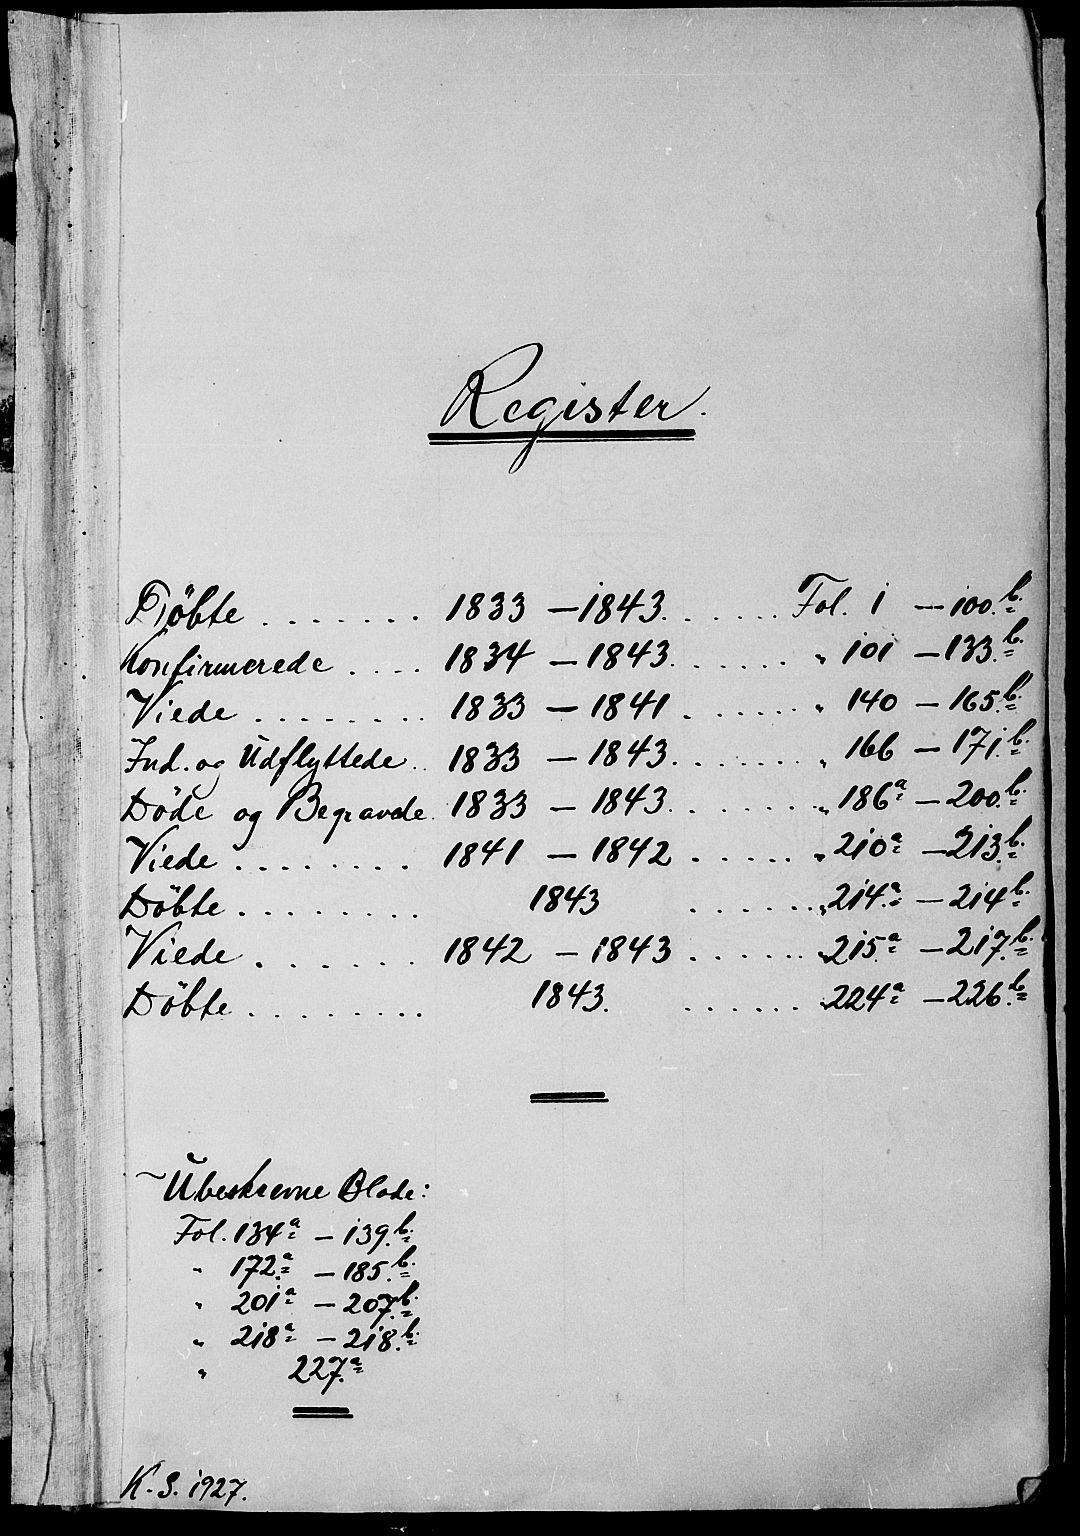 Register.
Döbte ....... 1833 — 1843. ...... Fol. 1 — 100.b.
Konfirmerede .... 1834 — 1843. ...... " 101 — 133.b.
Viede ........ 1833 — 1841 ...... " 140 — 165.b.
Ind. og Udflyttede .. 1833 — 1843. ...... " 166 — 171.b.
Döde og Begravede. 1833 — 1843. ...... " 186a — 200.b.
Viede ........ 1841 — 1842 ...... " 210a — 213.b.
Döbte ........ 1843 ...... " 214.a — 214b.
Viede . ...... 1842 — 1843 ...... " 215a — 217.b.
Döbte ........ 1843. ...... " 224a — 226.b
Ubeskrevne Blade:
Fol. 134a — 139.b.
" 172.a — 185.b.
" 201a — 207.b.
" 218a — 218.b.
" 227.a
K. S. 1927.